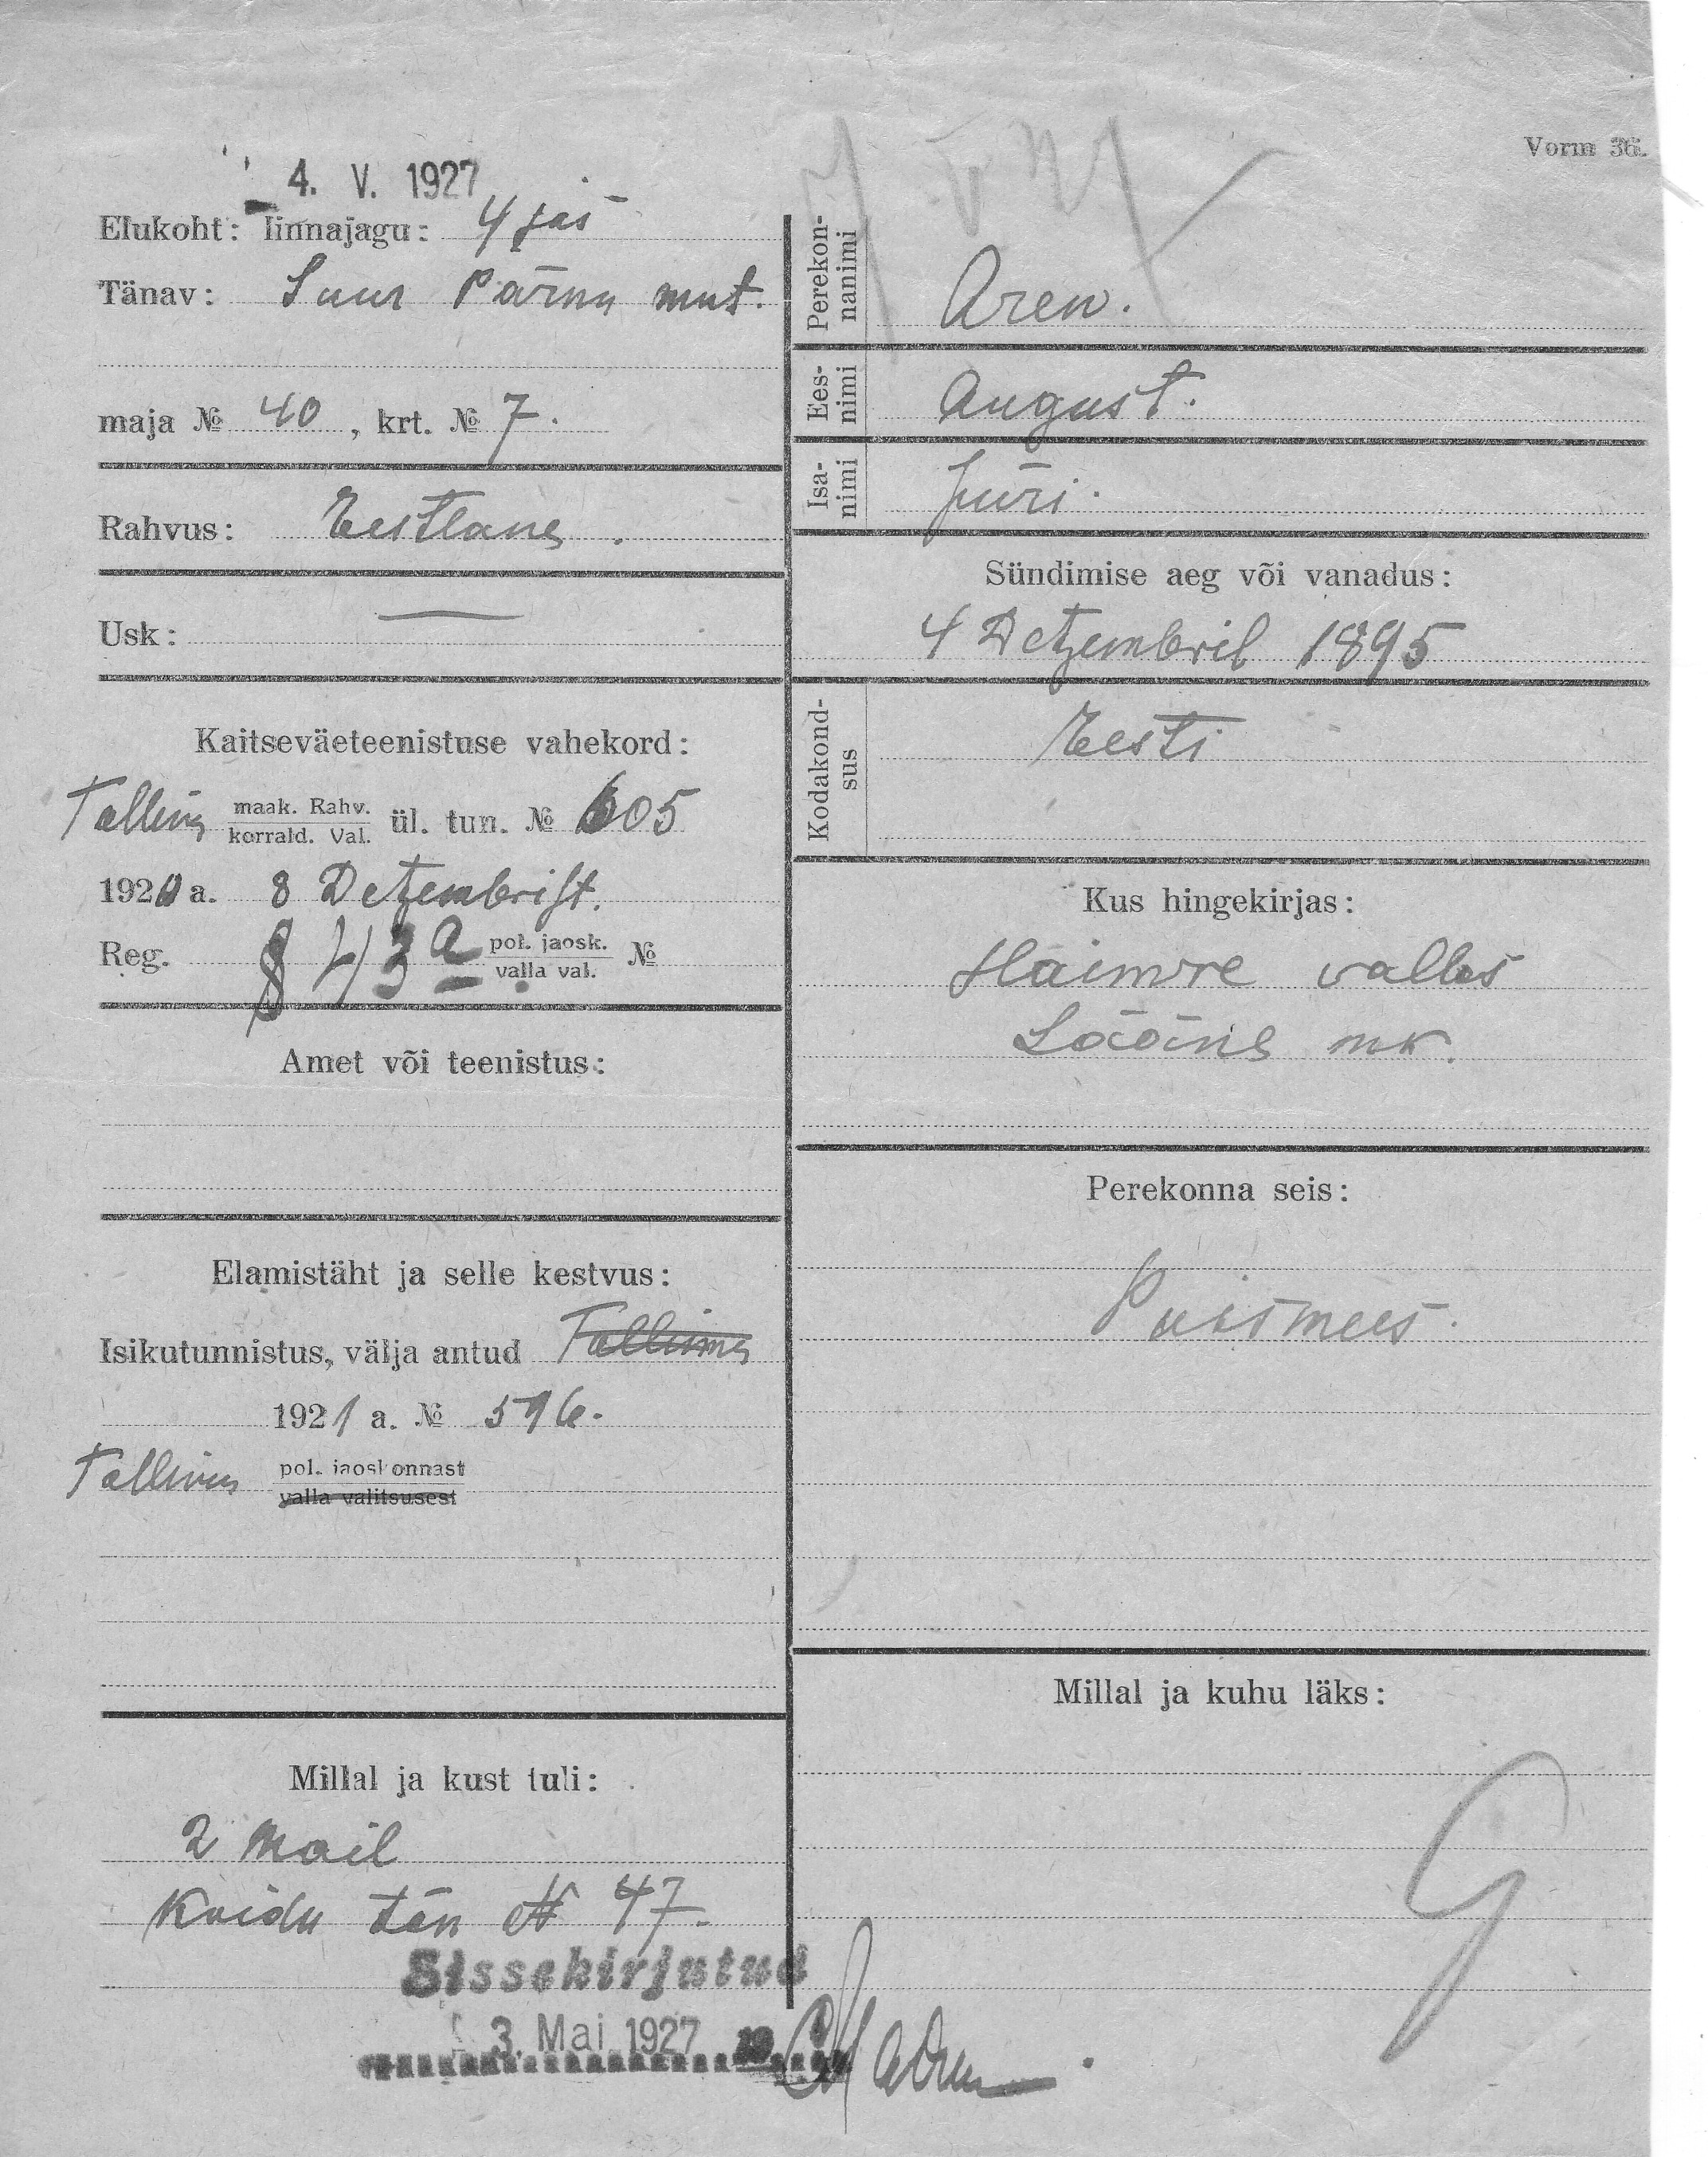 Vorm 36.
4. V. 1927
Elukoht: linnajagu: 4 jas
Tänav: Suur Pärnu mnt.
maja № 40, krt. № 7.
Rahvus: Eestlane.
Usk: —
Kaitseväeteenistuse vahekord:
Tallinna maak. Rahv. ül. tun. № 605
korrald. Val.
1920 a. 8 Detzembrist.
Reg. § 43 a pol. jaosk. №
valla val.
Amet või teenistus:
Elamistäht ja selle kestvus:
Isikutunnistus, välja antud Tallinna
1921 a. № 596.
Tallinna pol. jaoskonnast
valla valitsusest
Millal ja kust tuli:
2 Mail
Koidu tän № 47.
Sissekirjutud
3. Mai 1927
Perekon-
nanimi Aren.
Ees-
nimi August.
Isa-
nimi Jüri.
Sündimise aeg või vanadus:
4 Detzembril 1895
Kodakond-
sus Eesti
Kus hingekirjas:
Haimre vallas
Lääne mk.
Perekonna seis:
Poismees.
Millal ja kuhu läks: